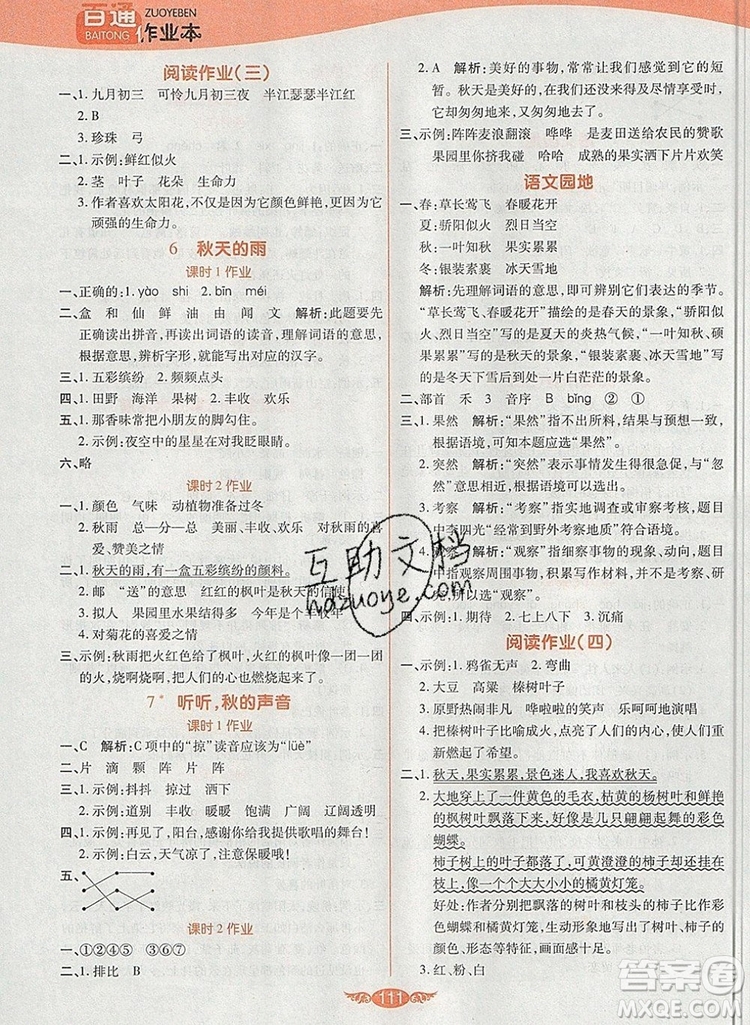 百通
BAITONG
ZUOYEBEN
作业本
阅读作业(三)
一、1.九月初三 可怜九月初三夜 半江瑟瑟半江红
2.B
3.珍珠 弓
二、1.示例:鲜红似火
2.茎 叶子 花朵 生命力
3.作者喜欢太阳花,不仅是因它颜色鲜艳,更因它
顽强的生命力。
6 秋天的雨
课时1作业
一、正确的:1.yào shi 2.bīn méi
二、盒 和 仙 鲜 由 闻 文 解析:此题要先
正确读出拼音,再读出词语的读音,理解词语的意思,
根据意思,辨析字形,能写出对应的汉字。
三、1.五彩缤纷 2.频频点头
四、1.田野 海洋 果树 2.丰收 欢乐
五、1.那香味常把小朋友的脚勾住。
2.示例:夜空中的星星在对我眨眼睛。
六、略
课时2作业
一、1.颜色 气味 动植物准备过冬
2.秋雨 总—分—总 美丽、丰收、欢乐 对秋雨的喜
爱、赞美之情
二、1.秋天的雨,有一盒五彩缤纷的颜料。
2.邮 “送”的意思 红红的枫叶是秋天的信使
3.拟人 果园里水果结得多 今年是个丰收年
4.对菊花的喜爱之情
三、示例:秋雨把火红色给了枫叶,火红的枫叶像一团一团的
火,烧啊烧啊,把人们的心也燃烧起来了。
7* 听听,秋的声音
课时1作业
一、C 解析:C项中的“掠”读音应该为“lüè”
二、片 滴 颗 阵 片 阵
三、1.示例:抖抖 掠过 洒下
2.示例:道别 丰收 暖暖 饱满 广阔 辽阔透明
四、1.示例:再见了,阳台,感谢你提供给我歌唱的舞台!
2.示例:白云,天气凉了,注意保暖呀!
五、
课时2作业
一、①②④⑤ ③⑥⑦
二、1.排比 B
2.A 解析:美好的事物,常常让我们感觉到它的短
暂。秋天是美好的,在我们还没来得及尽情享受时,
它匆匆地来,又匆匆地去了。
三、示例:阵阵麦浪翻滚 哗哗 是麦田送给农民的赞歌
果园里你挤我碰 哈哈 成熟的果实洒下片片欢笑
语文园地
一、春:草长莺飞 春暖花开
夏:骄阳似火 烈日当空
秋:一叶知秋 果实累累
冬:银装素裹 冰天雪地
解析:先理解词语的意思,即可辨别它们表达的季节。
“草长莺飞、春暖花开”描写的是春天的景象,“骄阳似
火、烈日当空”是写夏天的炎热气候,“一叶知秋、硕
果累累”是写秋天的景象,“银装素裹、冰天雪地”是
描写冬天下雪后一片白茫茫的景象。
二、部首 禾 3 音序 B bǐng ② ①
三、1.果然 解析:“果然”指不出所料,结局与预料相同,
根据语境,可知本题应选“果然”。
2.突然 解析:“突然”表示事情发生得很意外,与“忽
然”的意思相近,根据语境可选择。
3.考察 解析:“考察”指实地观察或审察、考核,题目
中李四光“经常到野外考察地质”符合语境。
4.观察 解析:“观察”指细察事物的现象、动向,题目
中指观察周围事物,可以用来指自然现象或社会现
象,所以选“观察”。
四、示例:1.期待 2.七上八下 3.沉痛
阅读作业(四)
一、示例:1.鸦雀无声 2.弯曲
2.大豆 高粱 榛树叶子
3.原野热闹非凡 哗啦啦的笑声 乐呵呵地演讲
4.把榛树叶子比作火,点亮了人们的内心,使人们重
新燃起了希望。
二、1.秋天,果实累累,景色迷人,我喜欢秋天。
2.大地穿上了一件黄色的毛衣,枯黄的杨树叶和鲜艳
的枫树叶飘落下来,好像是几只翩翩起舞的彩色
蝴蝶。
柿子树上的叶子都落了,可黄澄澄的柿子却还挂在
枝上,就像一个个大大小小的橘黄灯笼。
好处:作者分别把飘落的杨树叶和柿子比作彩
色蝴蝶和橘黄灯笼,生动形象地写出了树叶、柿子
的颜色、形态等特点,画面感十足。
3.红、粉、白
互助文档
hazuoye.com
111
答案圈
MXQE.COM